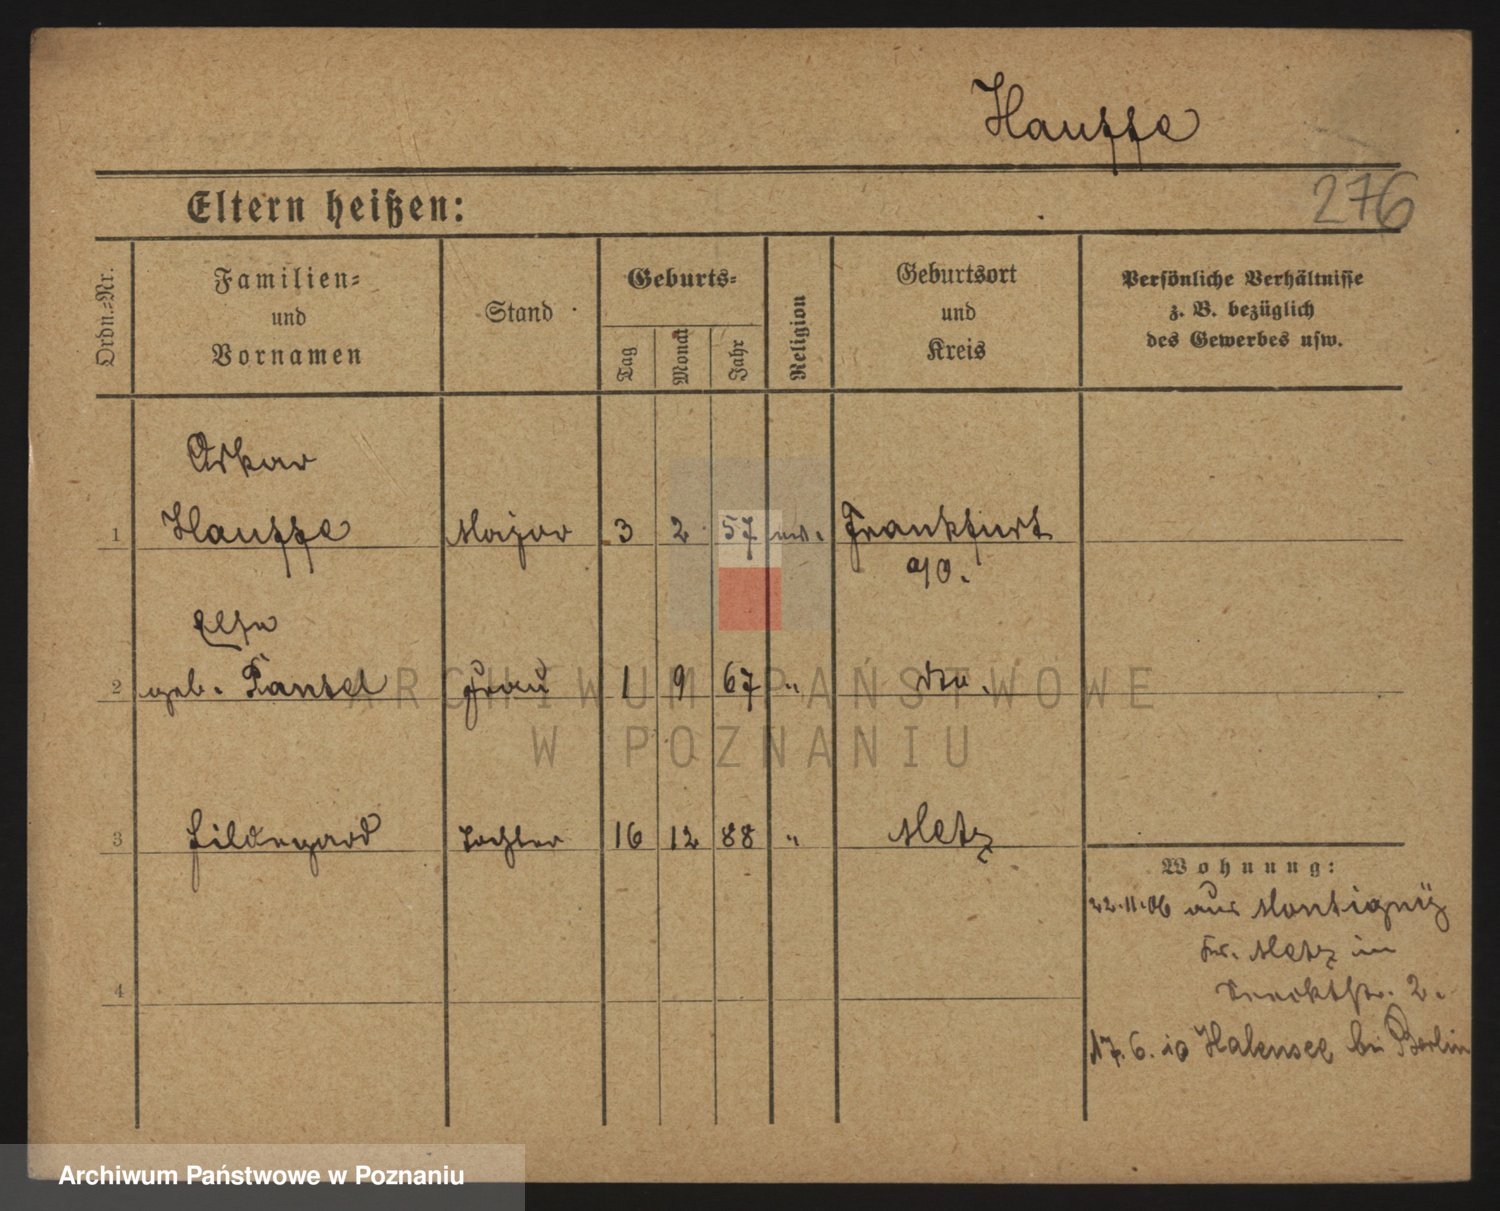 Hauffe
276
Eltern heißen:
Ordn.-Nr.
Familien-
und
Vornamen
Stand
Geburts-
Tag
Monat
Jahr
Religion
Geburtsort
und
Kreis
Persönliche Verhältnisse
z. B. bezüglich
des Gewerbes usw.
Oskar
1 Hauffe Major 3 2 57 ev. Frankfurt
a/O.
Else
2 geb. Pantel Frau 1 9 67 " Do.
ARCHIWUM PAŃSTWOWE
W POZNANIU
3 Hildegard Tochter 16 12 88 " Metz
Wohnung:
22.11.06 aus Montigny
Kr. Metz in
2.
4
17.6.10 Halensee bei Berlin
Archiwum Państwowe w Poznaniu